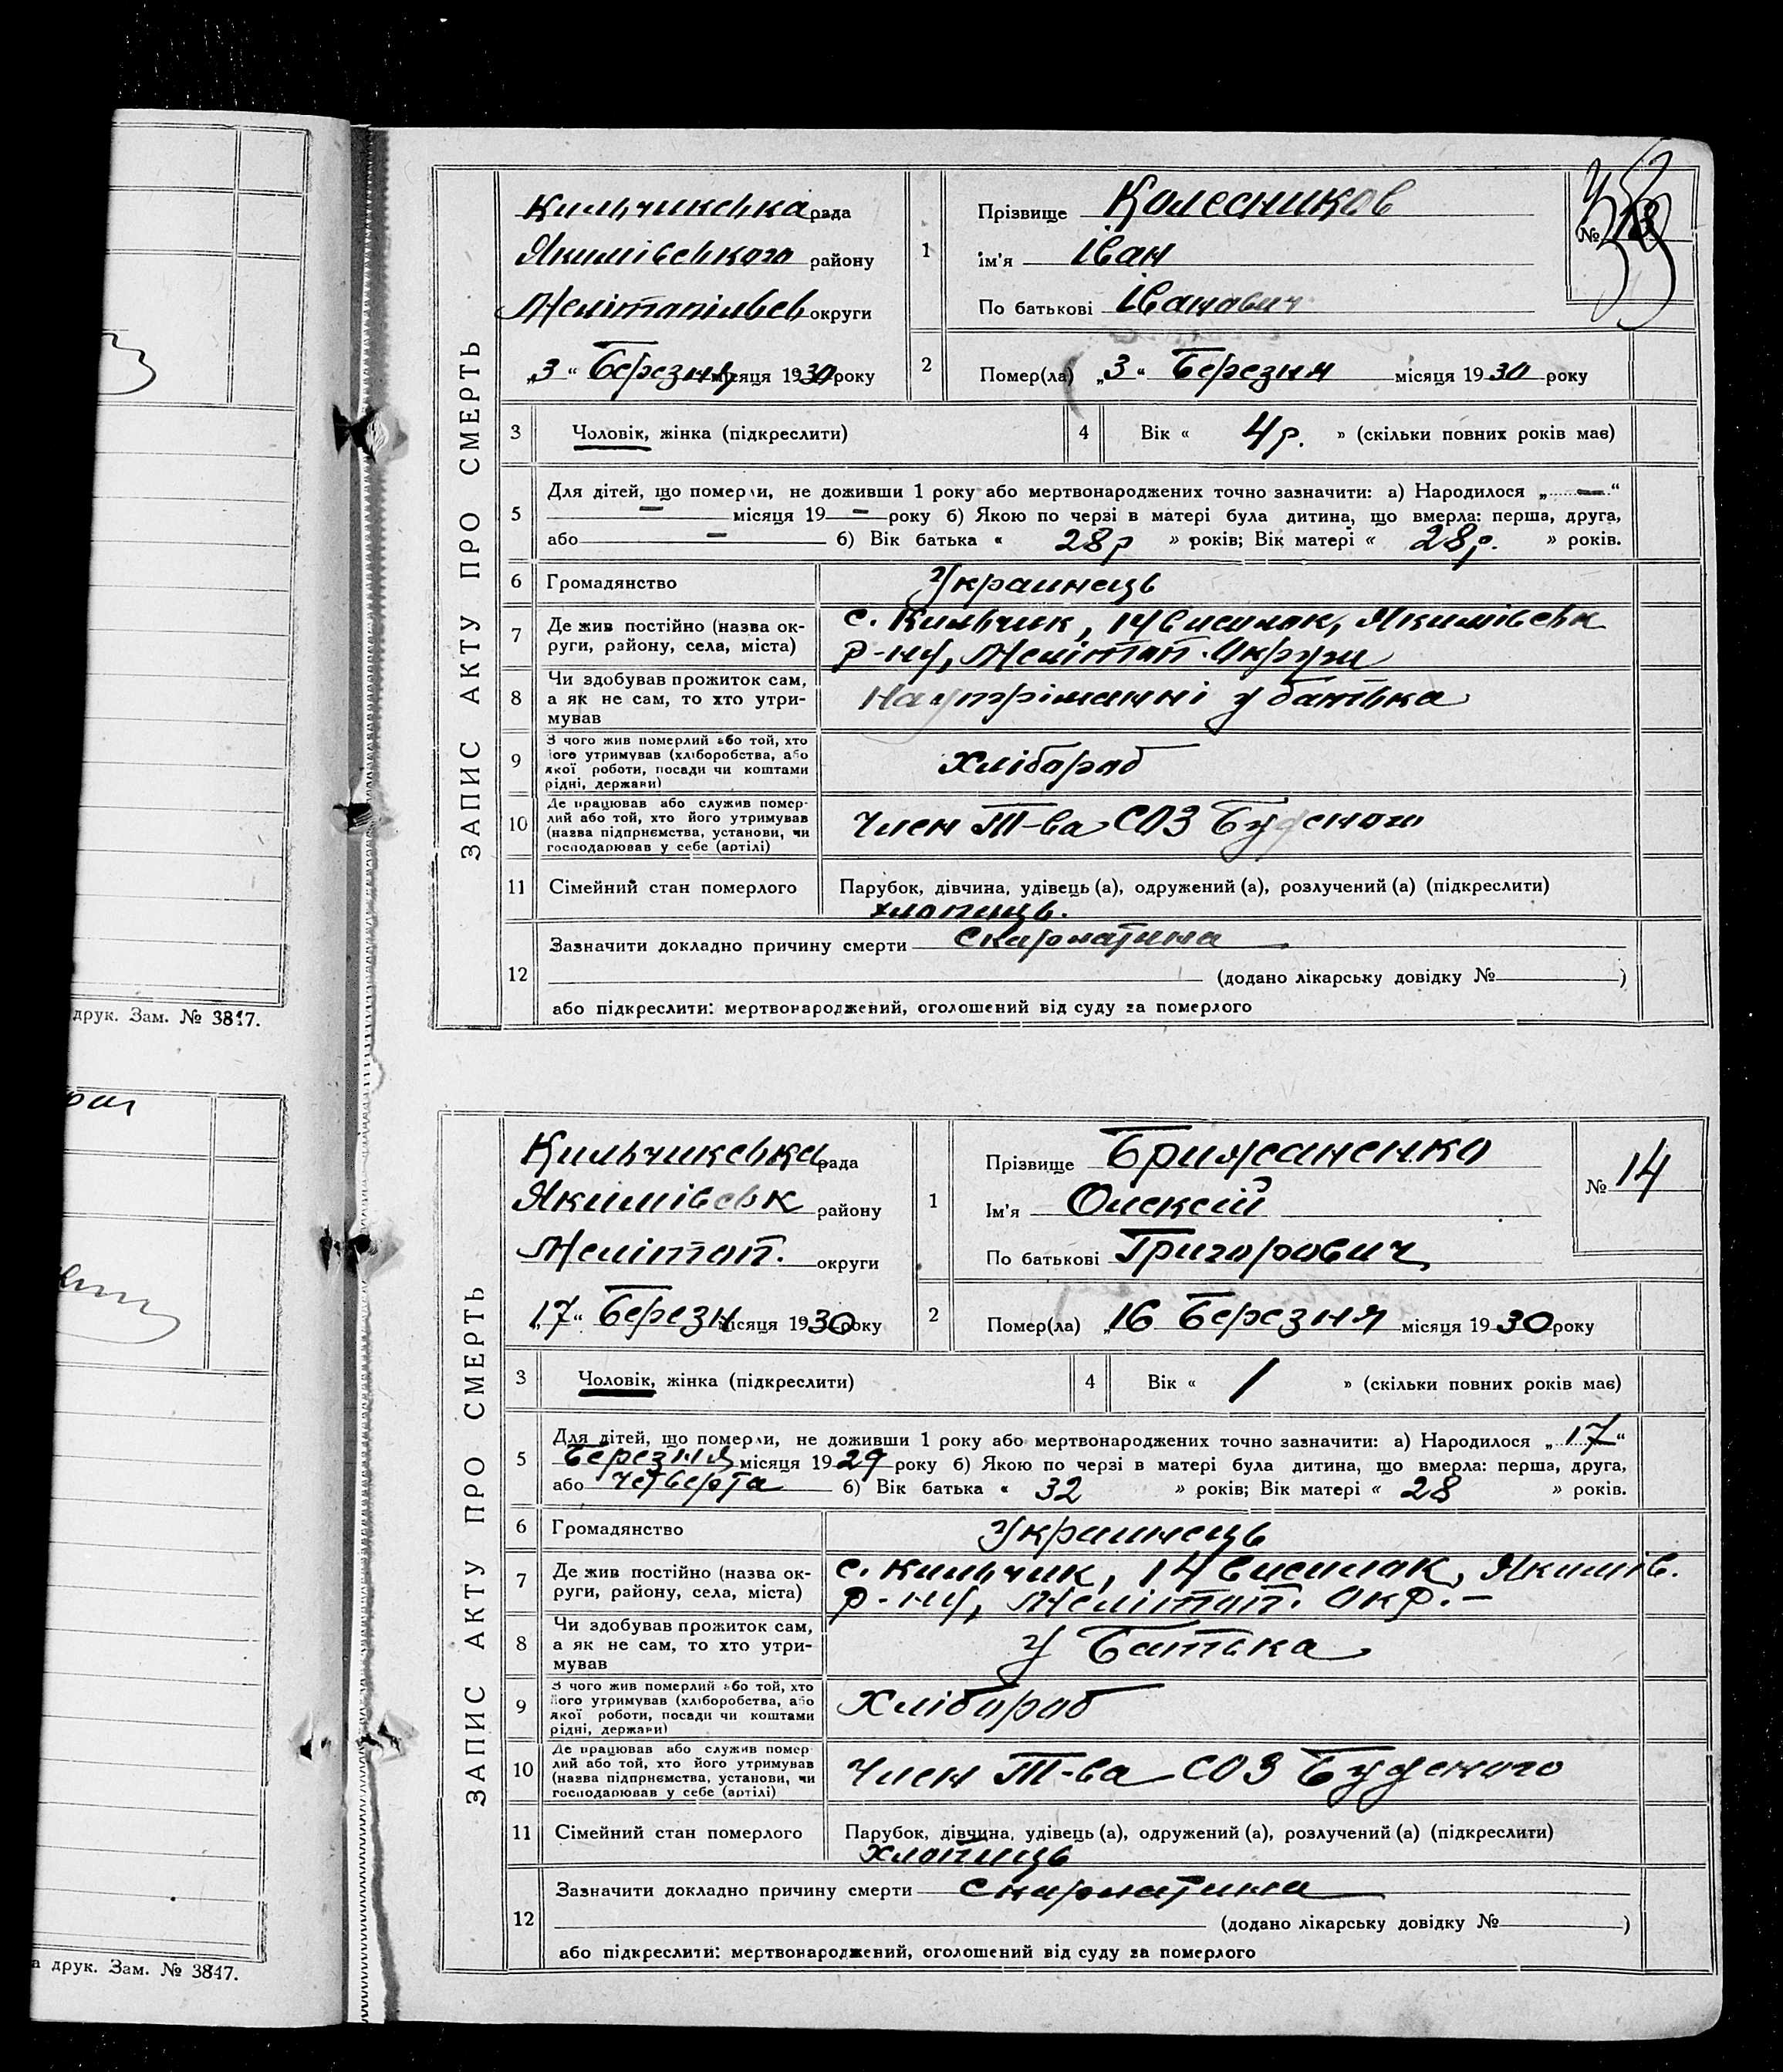 ЗАПИС АКТУ ПРО СМЕРТЬ
Кильчикська рада
Якимівського району
Мелітопільськ округи
„3“ Березня місяця 1930 року
1
Прізвище Колесников
ім'я Іван
По батькові Іванович
№
2
Помер(ла) „3“ Березня місяця 1930 року
3 Чоловік, жінка (підкреслити)
4 Вік « 4 р. » (скільки повних років має)
5 Для дітей, що померли, не доживши 1 року або мертвонароджених точно зазначити: а) Народилося „ — “
— місяця 19 — року б) Якою по черзі в матері була дитина, що вмерла: перша, друга,
або — б) Вік батька « 28 р » років; Вік матері « 28 р. » років.
6 Громадянство Украинець
7 Де жив постійно (назва ок-
руги, району, села, міста)
с. Кильчик, 14 висилок, Якимівськ
р-ну, Мелітоп. Округи
8 Чи здобував прожиток сам,
а як не сам, то хто утри-
мував
На утріманні у батька
9 З чого жив померлий або той, хто
його утримував (хліборобства, або
якої роботи, посади чи коштами
рідні, держави)
Хлібороб
10 Де працював або служив помер-
лий або той, хто його утримував
(назва підприємства, установи, чи
господарював у себе (артілі)
Член Т-ва СОЗ Буденого
11 Сімейний стан померлого Парубок, дівчина, удівець (а), одружений (а), розлучений (а) (підкреслити)
хлопиць.
12 Зазначити докладно причину смерти Скарлатина
(додано лікарську довідку № )
або підкреслити: мертвонароджений, оголошений від суду за померлого
друк. Зам. № 3847.
ЗАПИС АКТУ ПРО СМЕРТЬ
Кильчикська рада
Якимівськ району
Мелітоп. округи
„17“ Березн місяця 1930 року
1
Прізвище Брижаненко
Ім'я Олексій
По батькові Григорович
№ 14
2
Помер(ла) „16 Березня місяця 1930 року
3 Чоловік, жінка (підкреслити)
4 Вік « 1 » (скільки повних років має)
5 Для дітей, що померли, не доживши 1 року або мертвонароджених точно зазначити: а) Народилося „ 17 “
Березня місяця 1929 року б) Якою по черзі в матері була дитина, що вмерла: перша, друга,
або четверта б) Вік батька « 32 » років; Вік матері « 28 » років.
6 Громадянство Украинець
7 Де жив постійно (назва ок-
руги, району, села, міста)
с. Кильчик, 14 висилок, Якимів.
р-ну, Мелітоп. Окр. –
8 Чи здобував прожиток сам,
а як не сам, то хто утри-
мував
у Батька
9 З чого жив померлий або той, хто
його утримував (хліборобства, або
якої роботи, посади чи коштами
рідні, держави)
Хлібороб
10 Де працював або служив помер-
лий або той, хто його утримував
(назва підприємства, установи, чи
господарював у себе (артілі)
Член Т-ва СОЗ Буденого
11 Сімейний стан померлого Парубок, дівчина, удівець (а), одружений (а), розлучений (а) (підкреслити)
Хлопиць
12 Зазначити докладно причину смерти Скарлатина
(додано лікарську довідку № )
або підкреслити: мертвонароджений, оголошений від суду за померлого
а друк. Зам. № 3847.